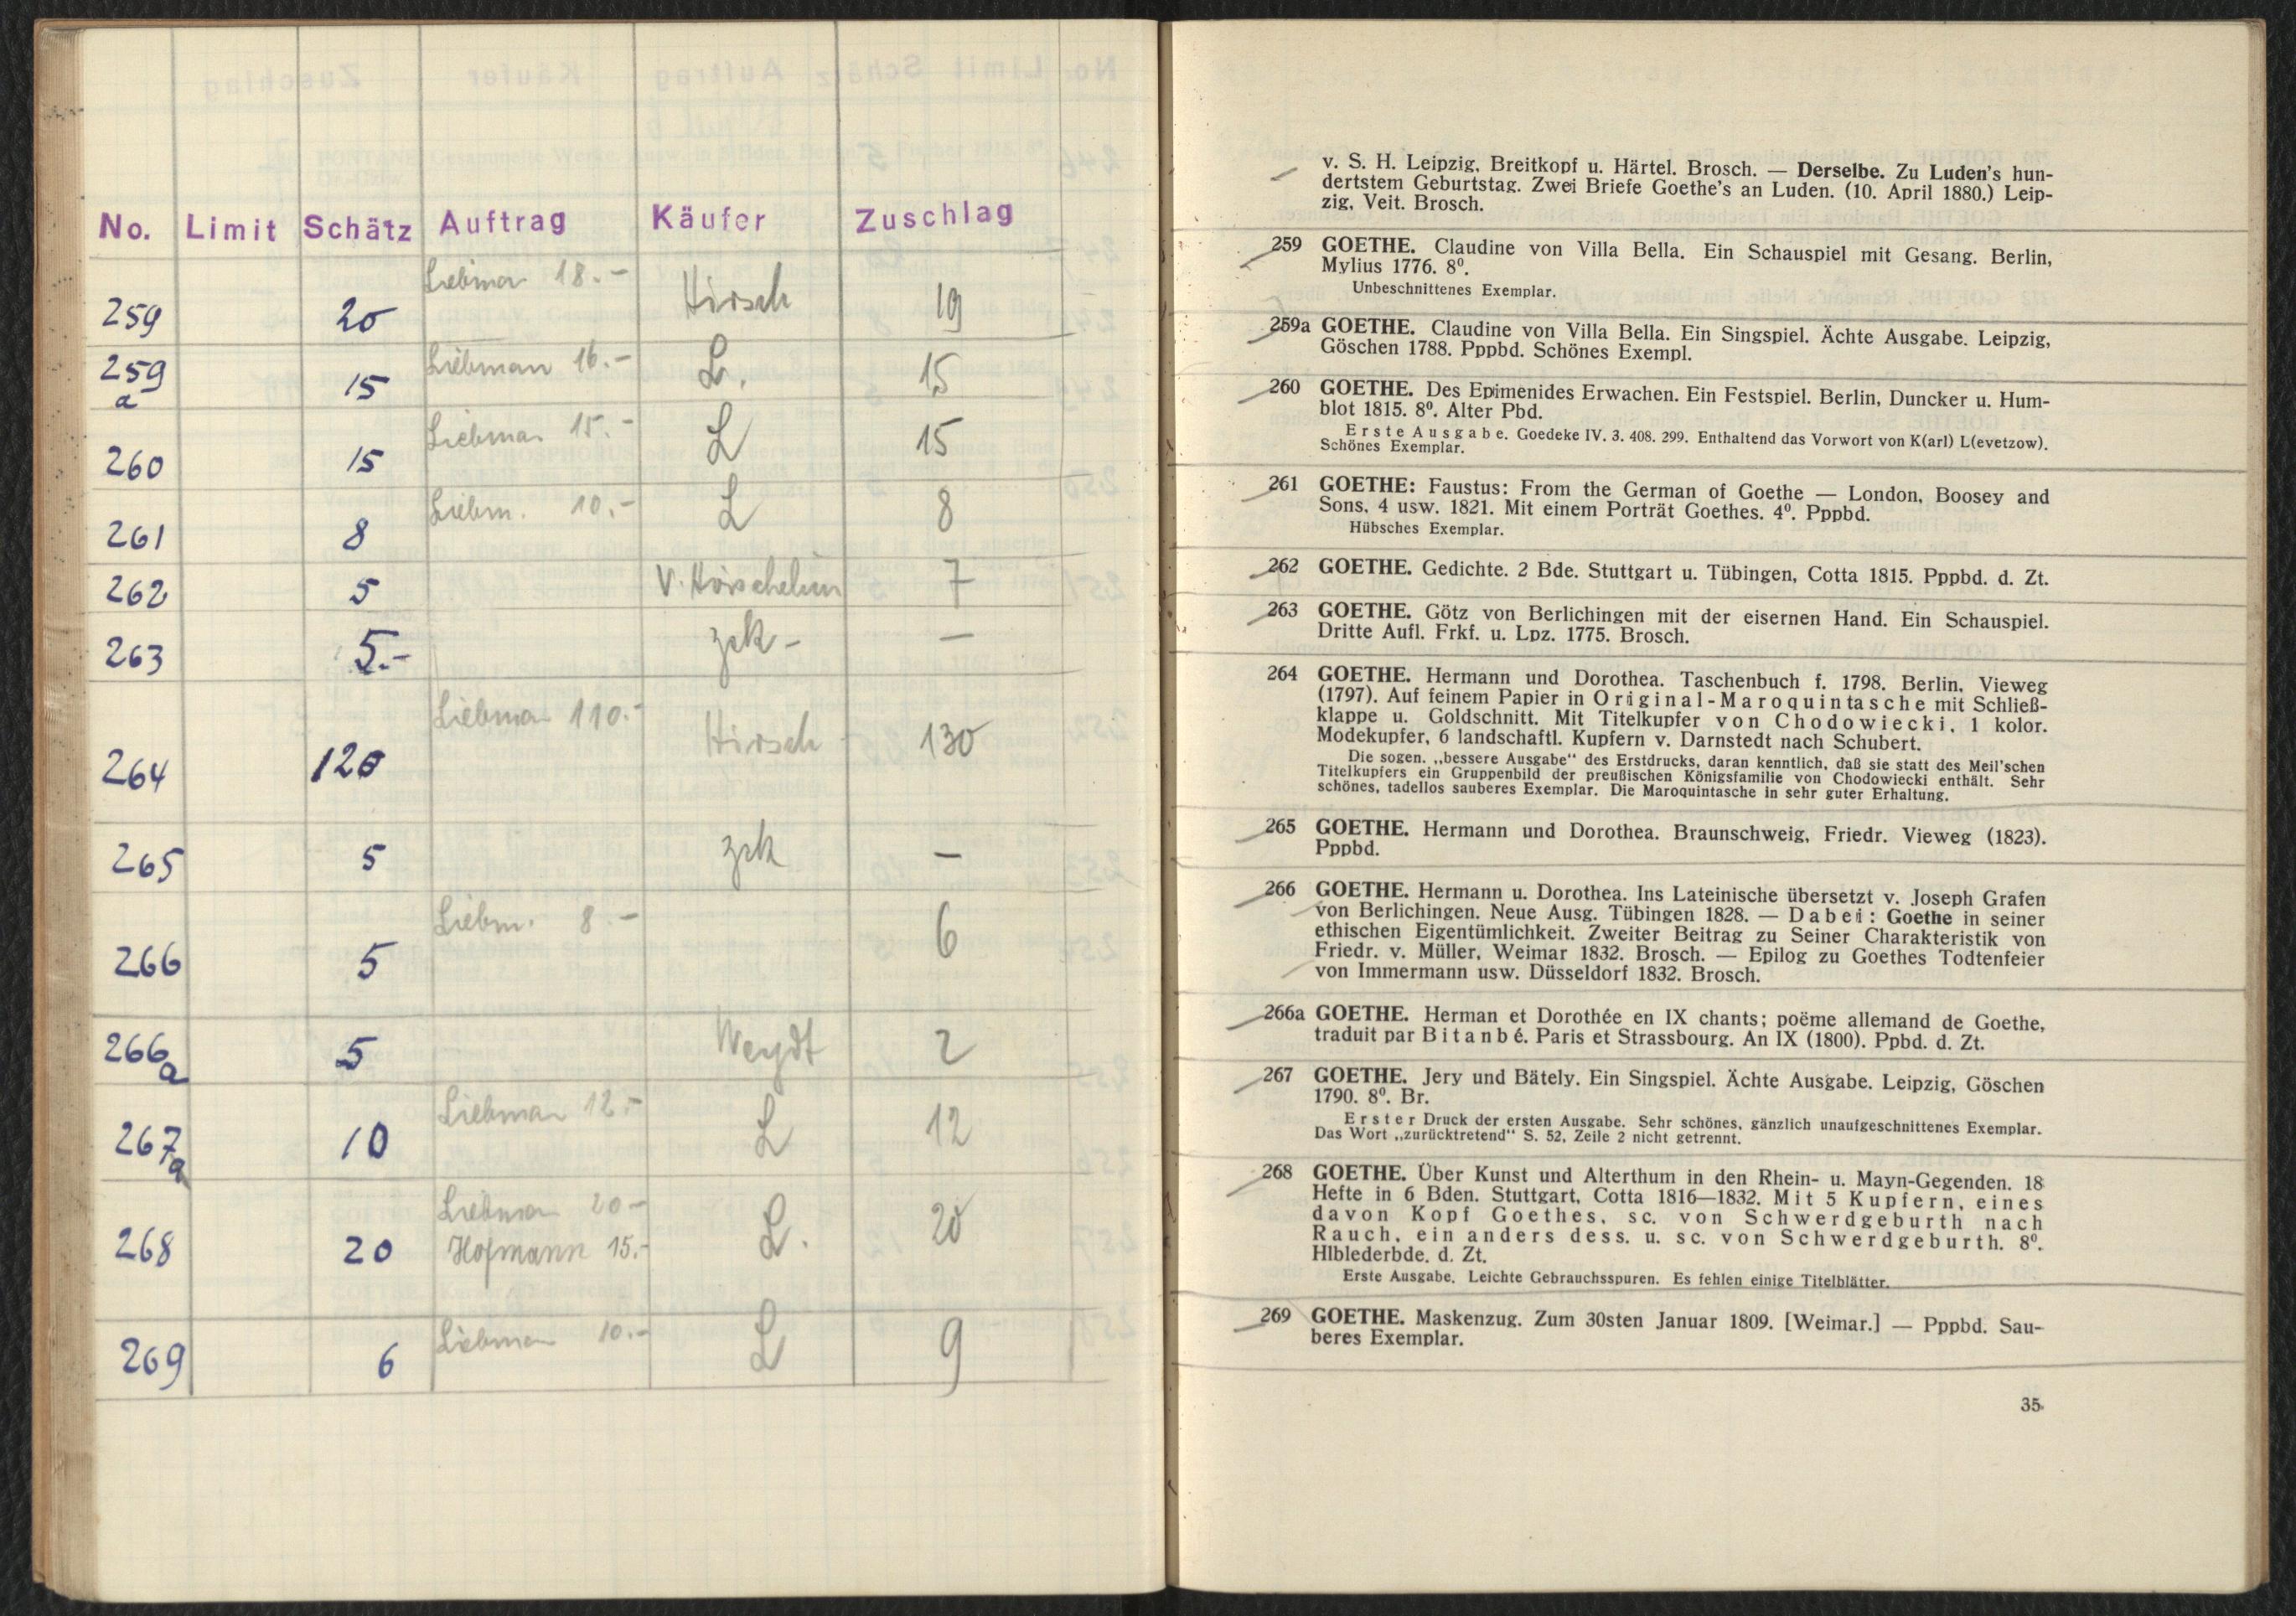 No. Limit Schätz Auftrag Käufer Zuschlag
259 20 Liebman 18.- Hirsch 19
259a 15 Liebman 16.- L. 15
260 15 Liebman 15.- L 15
261 8 Liebm. 10.- L 8
262 5 7
263 5.- zrk - —
264 120 Liebman 110.- Hirsch 130
265 5 zrk —
266 5 Liebm. 8.- 6
266a 5 Weydt 2
267a 10 Liebman 12.- L 12
268 20 Liebman 20.- L. 20
Hofmann 15.-
269 6 Liebman 10.- L 9
v. S. H. Leipzig, Breitkopf u. Härtel. Brosch. — Derselbe. Zu Luden's hun-
dertstem Geburtstag. Zwei Briefe Goethe's an Luden. (10. April 1880.) Leip-
zig, Veit. Brosch.
259 GOETHE. Claudine von Villa Bella. Ein Schauspiel mit Gesang. Berlin,
Mylius 1776. 8⁰.
Unbeschnittenes Exemplar.
259a GOETHE. Claudine von Villa Bella. Ein Singspiel. Ächte Ausgabe. Leipzig,
Göschen 1788. Pppbd. Schönes Exempl.
260 GOETHE. Des Epimenides Erwachen. Ein Festspiel. Berlin, Duncker u. Hum-
blot 1815. 8⁰. Alter Pbd.
Erste Ausgabe. Goedeke IV. 3. 408. 299. Enthaltend das Vorwort von K(arl) L(evetzow).
Schönes Exemplar.
261 GOETHE: Faustus: From the German of Goethe — London, Boosey and
Sons, 4 usw. 1821. Mit einem Porträt Goethes. 4⁰. Pppbd.
Hübsches Exemplar.
262 GOETHE. Gedichte. 2 Bde. Stuttgart u. Tübingen, Cotta 1815. Pppbd. d. Zt.
263 GOETHE. Götz von Berlichingen mit der eisernen Hand. Ein Schauspiel.
Dritte Aufl. Frkf. u. Lpz. 1775. Brosch.
264 GOETHE. Hermann und Dorothea. Taschenbuch f. 1798. Berlin, Vieweg
(1797). Auf feinem Papier in Original-Maroquintasche mit Schließ-
klappe u. Goldschnitt. Mit Titelkupfer von Chodowiecki, 1 kolor.
Modekupfer, 6 landschaftl. Kupfern v. Darnstedt nach Schubert.
Die sogen. „bessere Ausgabe" des Erstdrucks, daran kenntlich, daß sie statt des Meil'schen
Titelkupfers ein Gruppenbild der preußischen Königsfamilie von Chodowiecki enthält. Sehr
schönes, tadellos sauberes Exemplar. Die Maroquintasche in sehr guter Erhaltung.
265 GOETHE. Hermann und Dorothea. Braunschweig, Friedr. Vieweg (1823).
Pppbd.
266 GOETHE. Hermann u. Dorothea. Ins Lateinische übersetzt v. Joseph Grafen
von Berlichingen. Neue Ausg. Tübingen 1828. — Dabei: Goethe in seiner
ethischen Eigentümlichkeit. Zweiter Beitrag zu Seiner Charakteristik von
Friedr. v. Müller, Weimar 1832. Brosch. — Epilog zu Goethes Todtenfeier
von Immermann usw. Düsseldorf 1832. Brosch.
266a GOETHE. Herman et Dorothée en IX chants; poëme allemand de Goethe,
traduit par Bitanbé. Paris et Strassbourg. An IX (1800). Ppbd. d. Zt.
267 GOETHE. Jery und Bätely. Ein Singspiel. Ächte Ausgabe. Leipzig, Göschen
1790. 8⁰. Br.
Erster Druck der ersten Ausgabe. Sehr schönes, gänzlich unaufgeschnittenes Exemplar.
Das Wort „zurücktretend" S. 52, Zeile 2 nicht getrennt.
268 GOETHE. Über Kunst und Alterthum in den Rhein- u. Mayn-Gegenden. 18
Hefte in 6 Bden. Stuttgart, Cotta 1816—1832. Mit 5 Kupfern, eines
davon Kopf Goethes, sc. von Schwerdgeburth nach
Rauch, ein anders dess. u. sc. von Schwerdgeburth. 8⁰.
Hlblederbde. d. Zt.
Erste Ausgabe. Leichte Gebrauchsspuren. Es fehlen einige Titelblätter.
269 GOETHE. Maskenzug. Zum 30sten Januar 1809. [Weimar.] — Pppbd. Sau-
beres Exemplar.
35